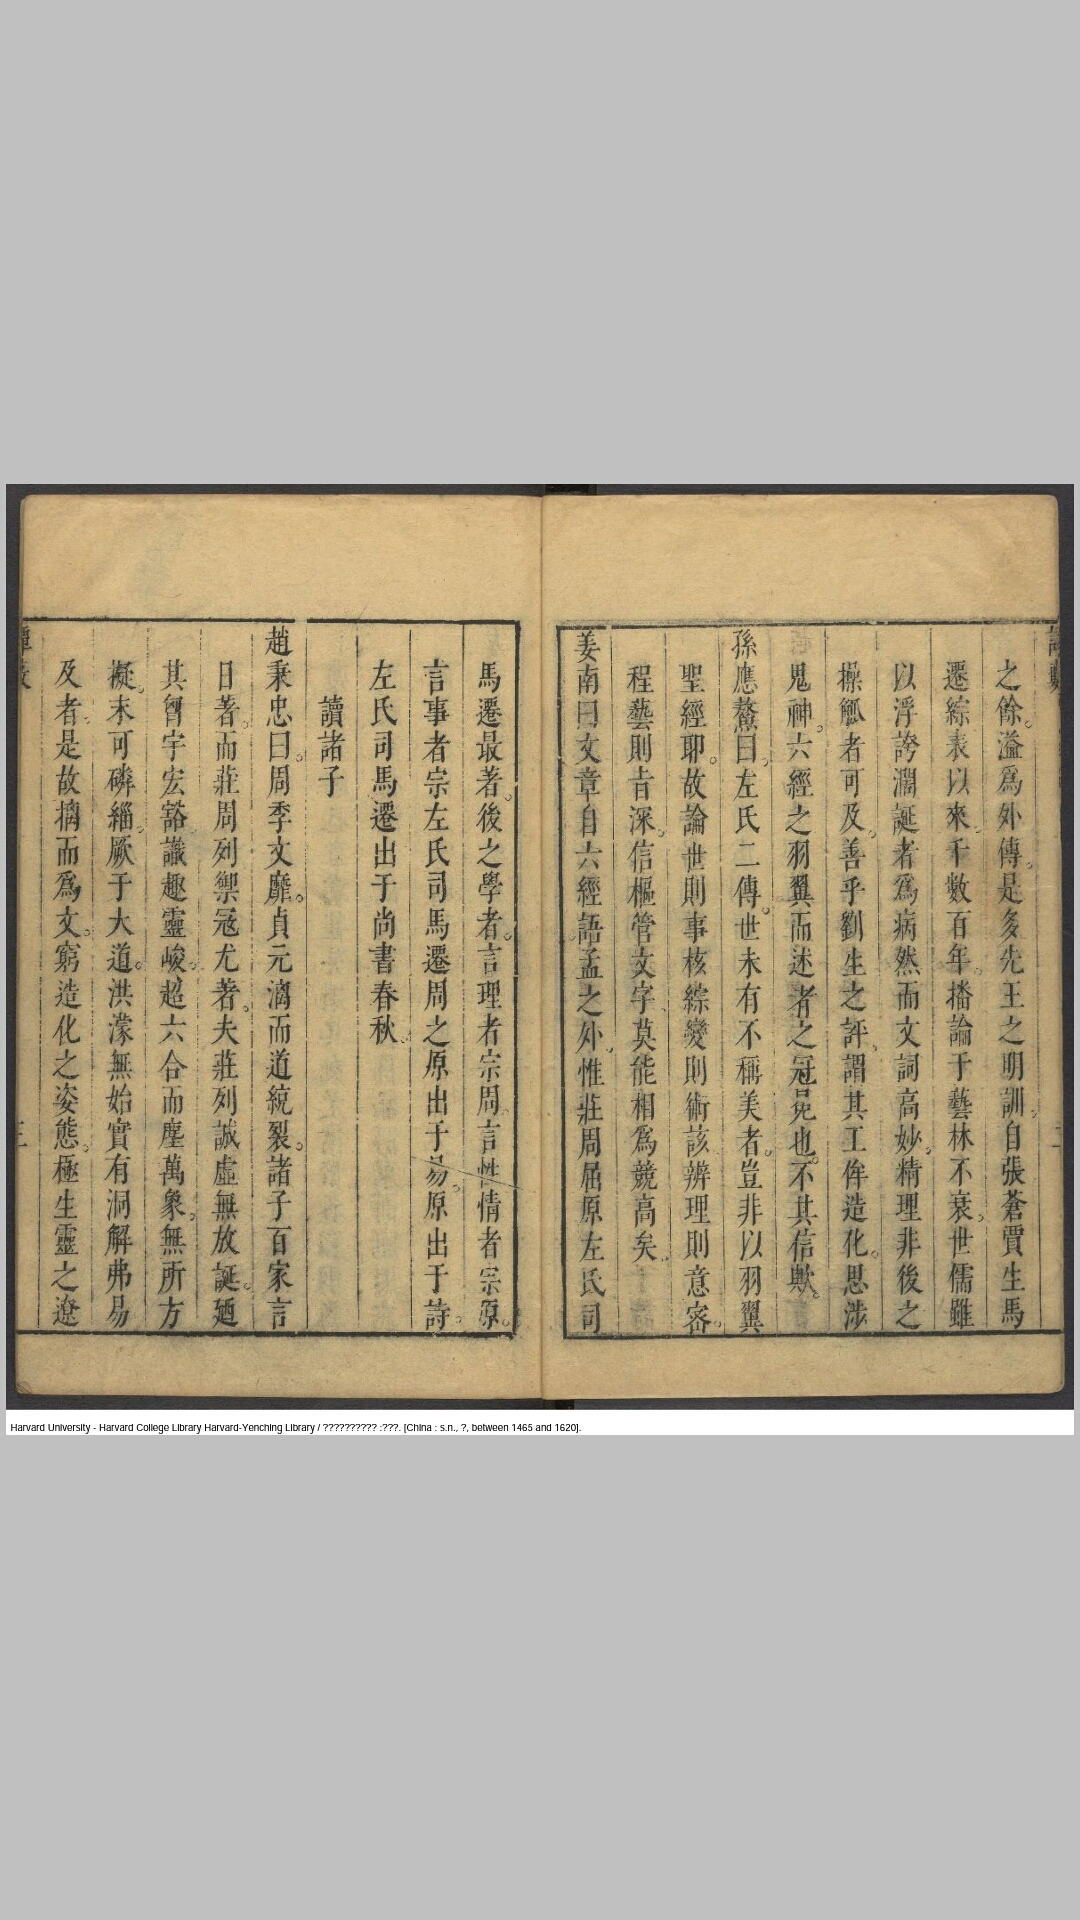 之餘溢爲外傳是多先王之明訓自張蒼賈生馬
遷綜表以來千數百年播論于藝林不衰世儒雖
以浮誇濶誕者爲病然而文詞高妙精理非後之
操觚者可及善乎劉生之評謂其工侔造化思涉
鬼神六經之羽翼而述者之冠冕也不其信歟
孫應鰲曰左氏二傳世未有不稱美者豈非以羽翼
聖經耶故論世則事核綜變則術該辨理則意密
程藝則旨深信樞管文字莫能相爲競高矣
姜南曰文章自六經語孟之外惟莊周屈原左氏司
馬遷最著後之學者言理者宗周言性情者宗原
言事者宗左氏司馬遷周之原出于易原出于詩
左氏司馬遷出于尚書春秋
讀諸子
趙秉忠曰周季文靡貞元漓而道統裂諸子百家言
日著而莊周列禦冦尤著夫莊列誠虛無放誕廼
其匈宇宏豁識趣靈峻超六合而塵萬象無所方
礙末可磷緇厥于大道洪濛無始實有洞解弗易
及者是故摛而爲文窮造化之姿態極生靈之遼
Harvard University - Harvard College Library Harvard-Yenching Library / ?????????? :???. [China : s.n., ?, between 1465 and 1620].